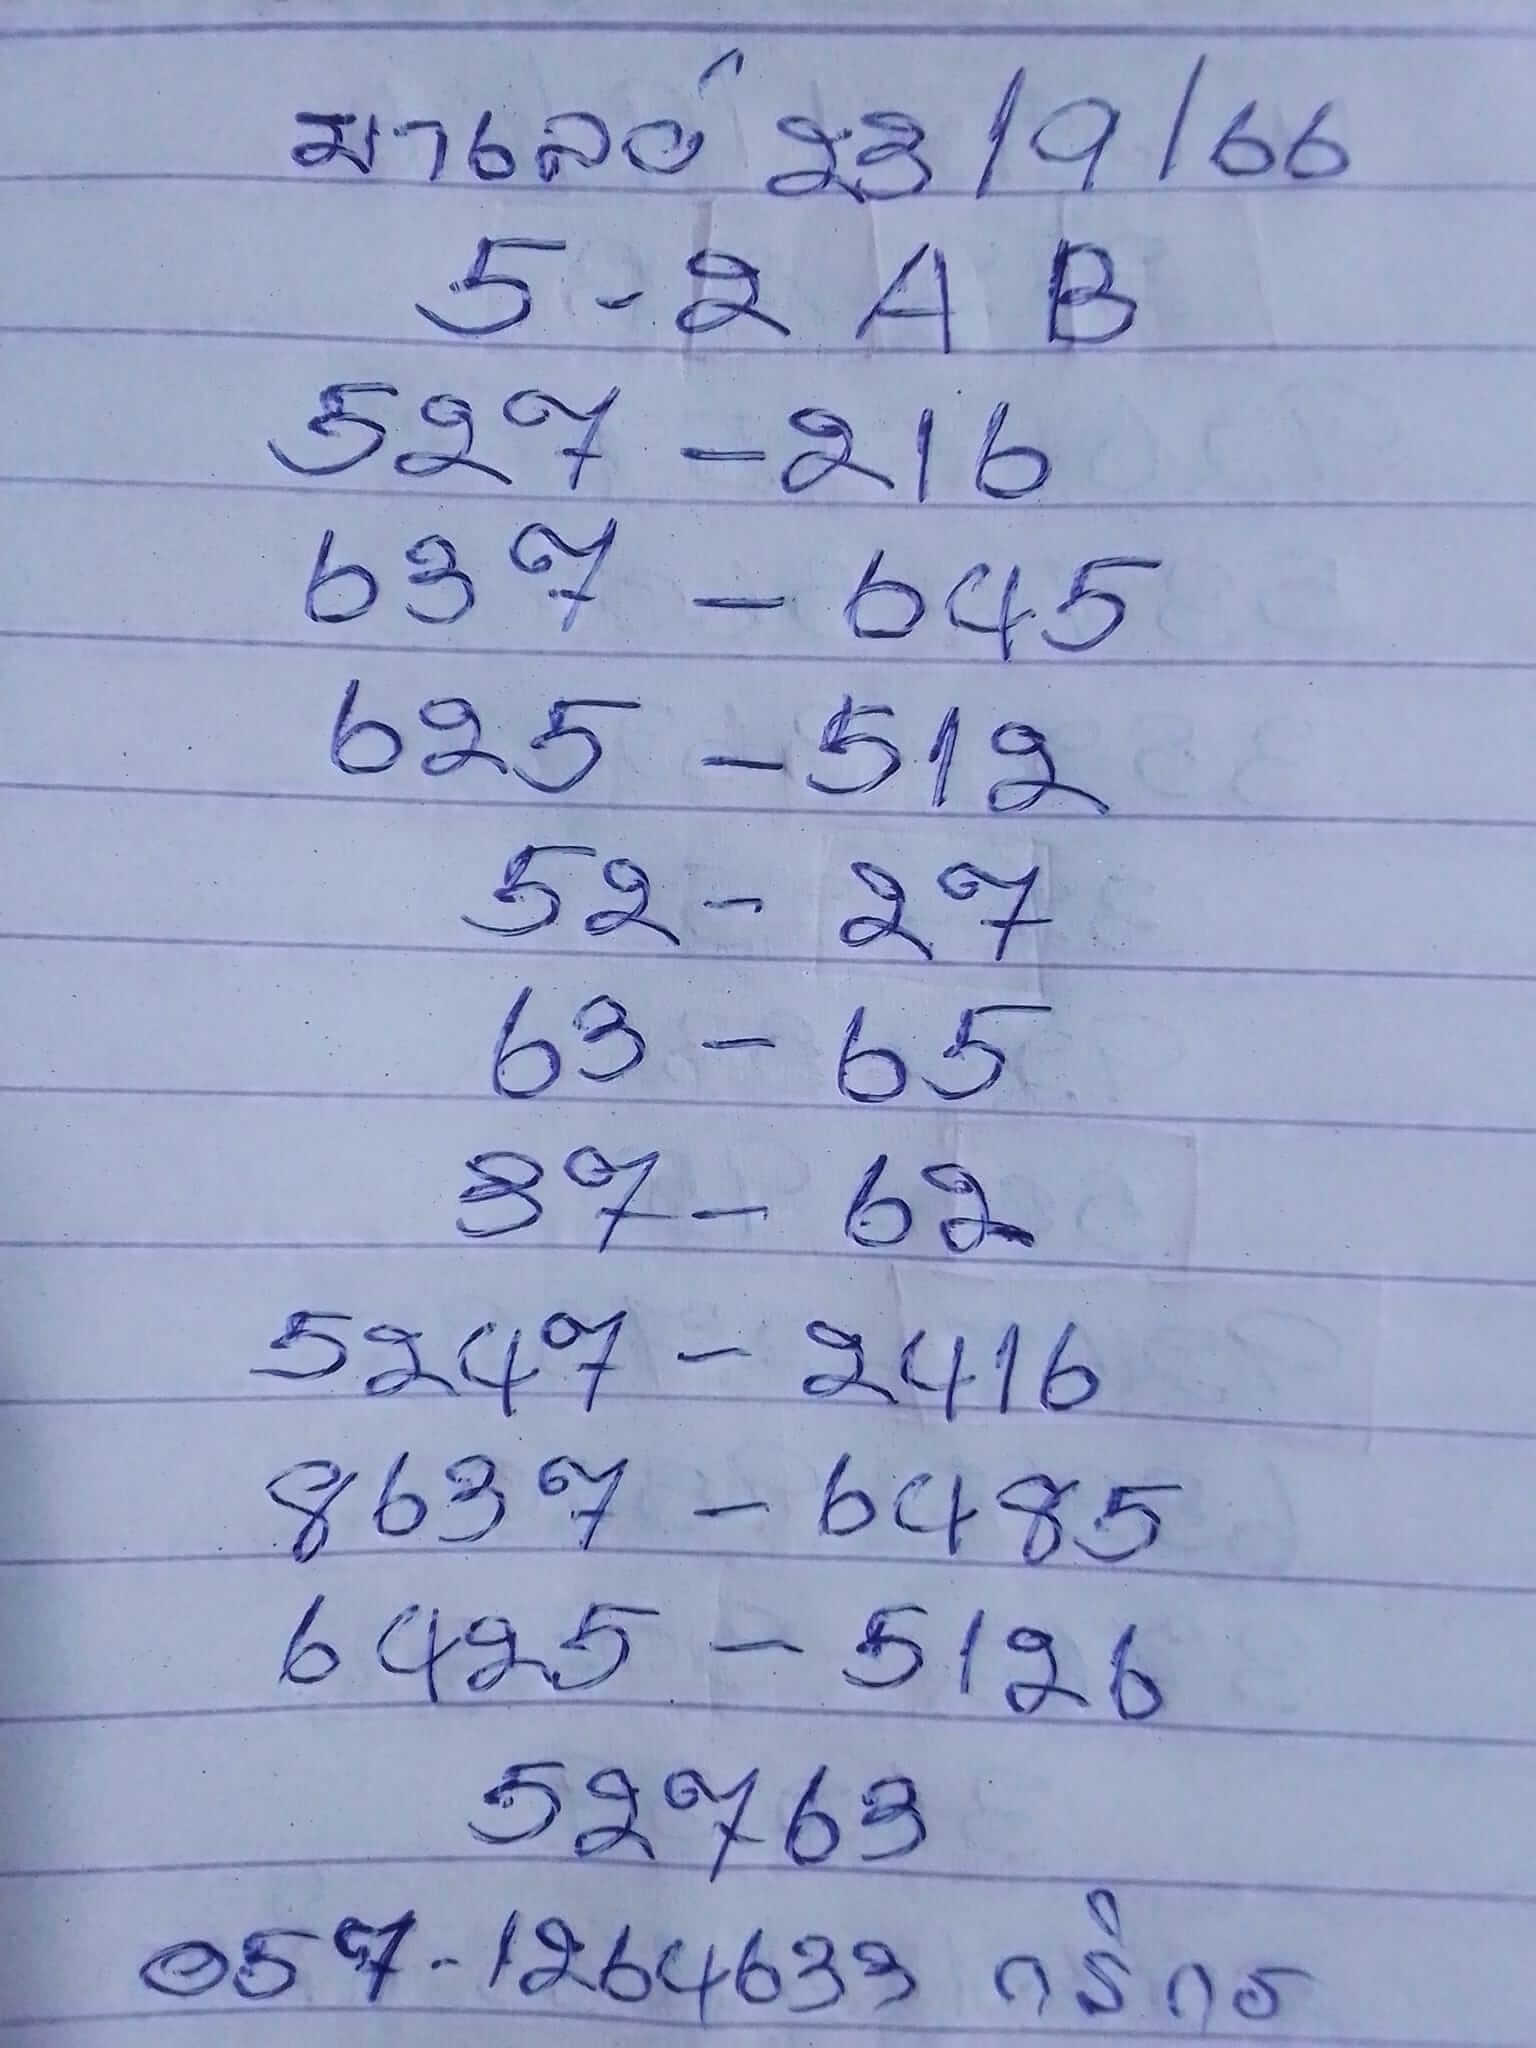 มาเลย์ 23/9/66
5-2 A B
527-216
637-645
625-512
52-27
63-65
37-62
5247-2416
8637-6485
6425-5126
52763
057-1264633 กสิกร